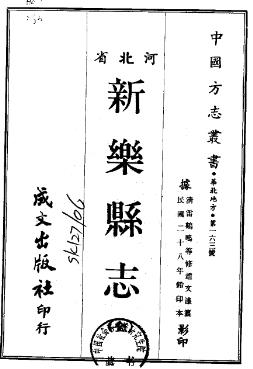 中國方志叢書・華北地方・第一六三號
據
清雷鶴鳴等修趙文濂纂
民國二十八年鉛印本
影印
河北省
新樂縣志
成文出版社印行
SK127/06